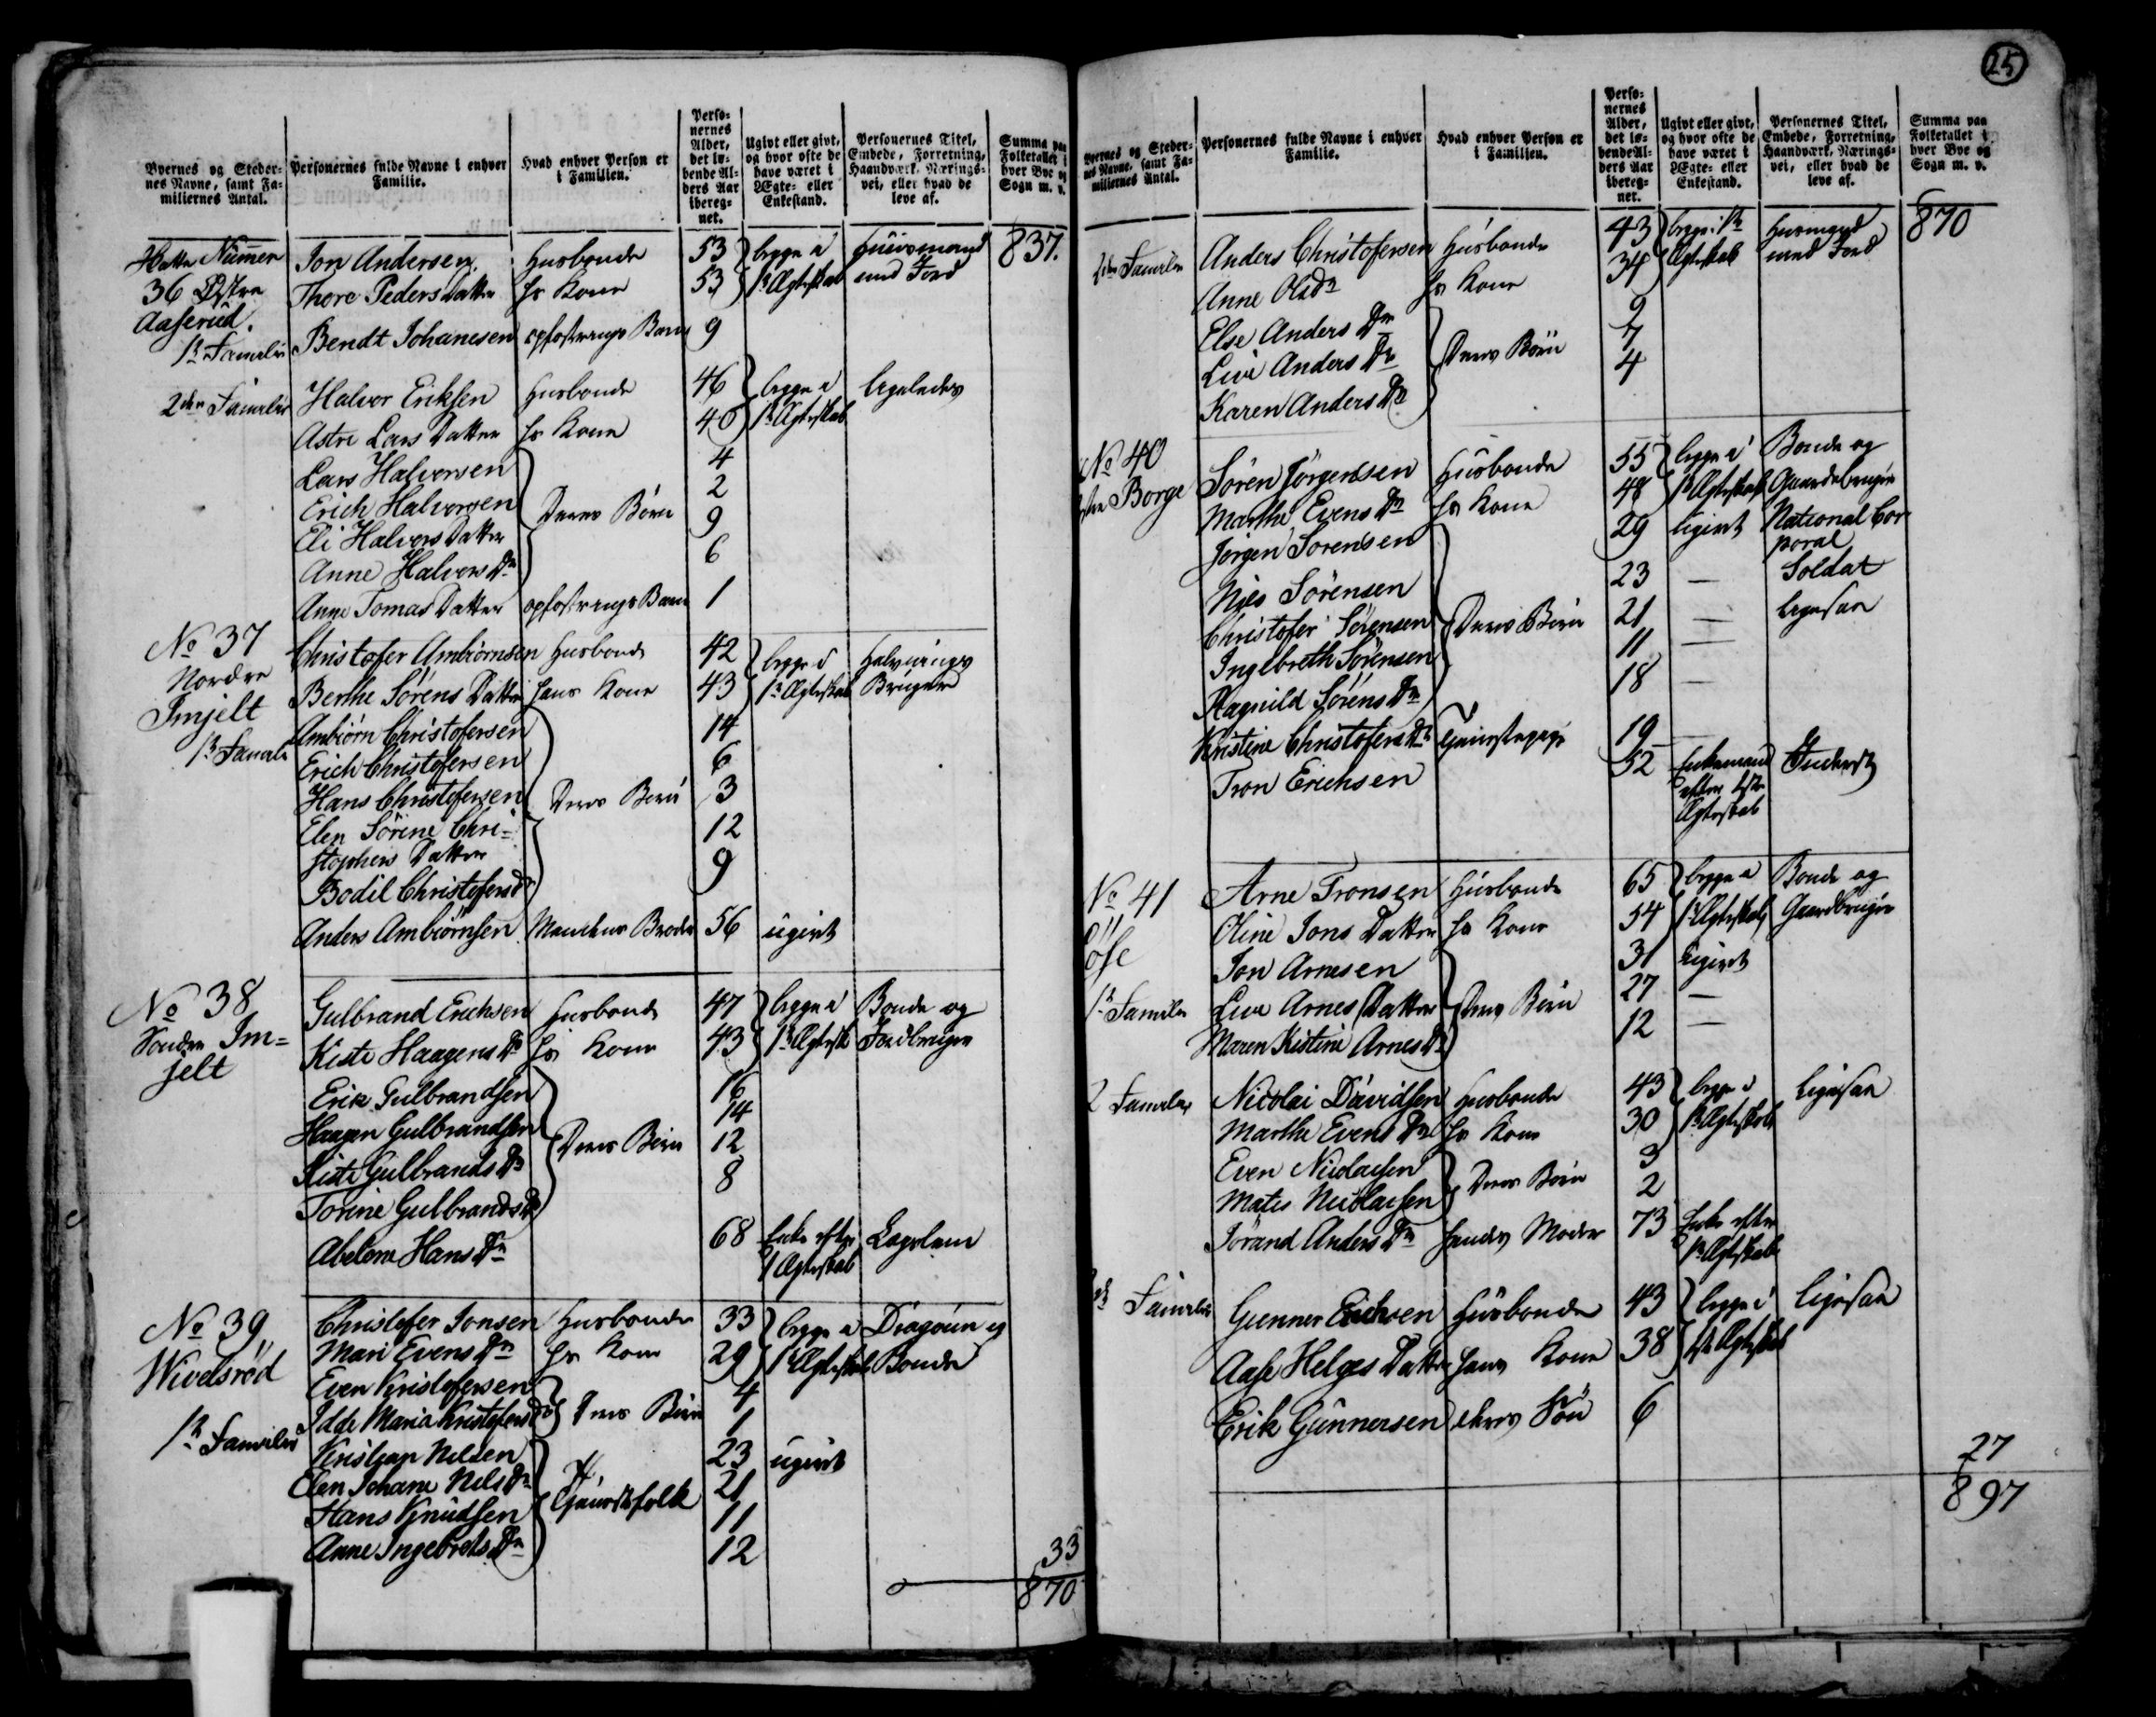 25
Byernes og Steder-
nes Navne, samt Fa-
miliernes Antal.
Personernes fulde Navne i enhver
Familie.
Hvad enhver Person er
i Familien.
Perso-
nernes
Alder,
det lø-
bende Al-
ders Aar
ibereg-
net.
Ugivt eller givt,
og hvor ofte de
have været i
Ægte- eller
Enkestand.
Personernes Titel,
Embede, Forretning,
Haandværk, Nærings-
vei, eller hvad de
leve af.
Summa paa
Folketallet i
hver Bye og
Sogn m. v.
Matr Numer Jon Andersen Husbonde 53 begge i Huusmand 837.
36 Østre Thore Peders Datter hs Kone 53 1t Ægteskab med Jord
Aaserud.
1ste Familie Bendt Johanesen opfostrings Barn 9
2den Familie Halvor Eriksen Husbonde 46 begge i ligeledes
Astri Lars Datter hs Kone 40 1t Ægteskab
Lars Halvorsen 4
Erich Halvorsen Deres Børn 2
Eli Halvors Datter 9
Anne Halvors Dr 6
Anne Tomas Datter opfostrings Barn 1
No 37 Christofer Ambiørnsen Husbond 42 begge i Halvnings
Nordre Berthe Sørens Datter hans Kone 43 1t Ægteskab Bruger
Imjelt Ambiørn Christofersen 14
1ste Famili Erich Christofersen 6
Hans Christofersen Deres Børn 3
Elen Sørine Chri- 12
stophers Datter
Bodil Christofers Dr 9
Anders Ambiørnsen Mandens Broder 56 ugivt
No 38 Gulbrand Erichsen Husbond 47 begge i Bonde og
Søndre Im- Kisti Haagens Dr hs Kone 43 1t Ægtesk Jordbruger
jelt
Erik Gulbrandsen 16
Haagen Gulbrandsen 14
Kisti Gulbrands Dr Deres Børn 12
Torine Gulbrands Dr 8
Abelona Hans Dr 68 Enke efter
1 Ægteskab
No 39 Christofer Jonsen Husbonde 33 begge i Dragoun og
Wivelsrød Mari Evens Dr hs Kone 29 1t Ægteskab Bonde
Even Kristofersen 4
1ste Familie Idde Maria Kristofers Dr Deres Børn 1
Kristian Nilsen 23 ugivt
Elen Johane Nils Dr Tjenestefolk 21
Hans Knudsen 11
Anne Ingebrets Dr 12
33
870
Byernes og Steder-
nes Navne, samt Fa-
miliernes Antal.
Personernes fulde Navne i enhver
Familie.
Hvad enhver Person er
i Familien.
Perso-
nernes
Alder,
det lø-
bende Al-
ders Aar
ibereg-
net.
Ugivt eller givt,
og hvor ofte de
have været i
Ægte- eller
Enkestand.
Personernes Titel,
Embede, Forretning,
Haandværk, Nærings-
vei, eller hvad de
leve af.
Summa paa
Folketallet i
hver Bye og
Sogn m. v.
2den Familie Anders Christofersen Husbonde 43 begge i 1t Husmand 870
Anne Ols Dr hs Kone 34 Ægteskab med Jord
Else Anders Dr 9
Live Anders Dr Deres Børn 7
Karen Anders Dr 4
No 40 Søren Jørgensen Husbonde 55 begge i Bonde og
Borge Marthe Evens Dr hs Kone 48 1t Ægteskab Gaardbruger
Jørgen Sørensen 29 ugivt National Cor
poral
Nies Sørensen 23 — Soldat
Christofer Sørensen Deres Børn 21 — ligesaa
Ingebreth Sørensen 11 —
Ragnild Sørens Dr 18 —
Kristine Christofers Dr Tienestepige 19
Tron Erichsen 52 Enkemand Inderst
efter 1ste
Ægteskab
No 41 Arne Tronsen Husbonde 65 begge i Bonde og
Oline Jons Datter hs Kone 54 1t Ægteskab Gaardbruger
Jon Arnesen 31 ugivt
1ste Familie Live Arnes Datter Deres Børn 27 —
Maren Kistine Arnes Dr 12 —
2 Familie Nicolai Davidsen Husbonde 43 begge i ligesaa
Marthe Evens Dr hs Kone 30 1t Ægteskab
Even Nicolaisen 3
Mates Nicolaisen Deres Børn 2
Jørand Anders Dr Mandens Moder 73 Enke efter
1t Ægteskab
Familie Gunner Erichsen Husbonde 43 begge i ligesaa
Aase Helges Datter hans Kone 38 1ste Ægteskab
Erik Gunnersen deres Søn 6
27
897